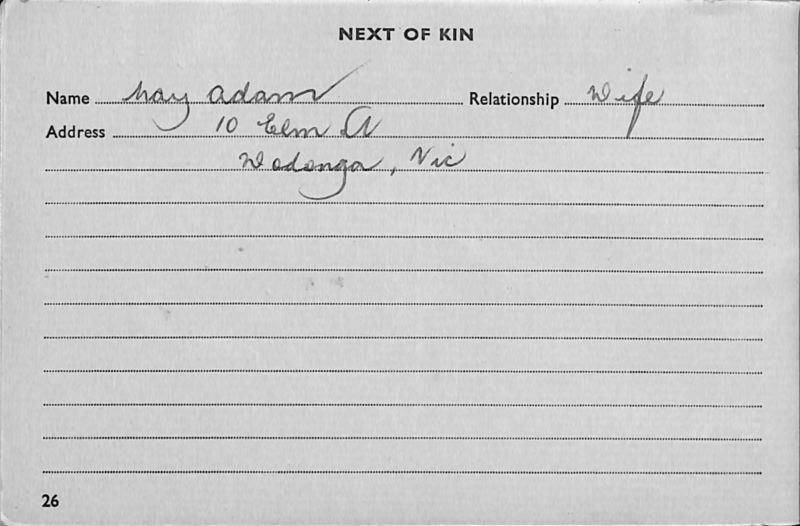 NEXT OF KIN
Name May Adam Relationship Wife
Address 10 Elm St
Wodonga, Vic
26